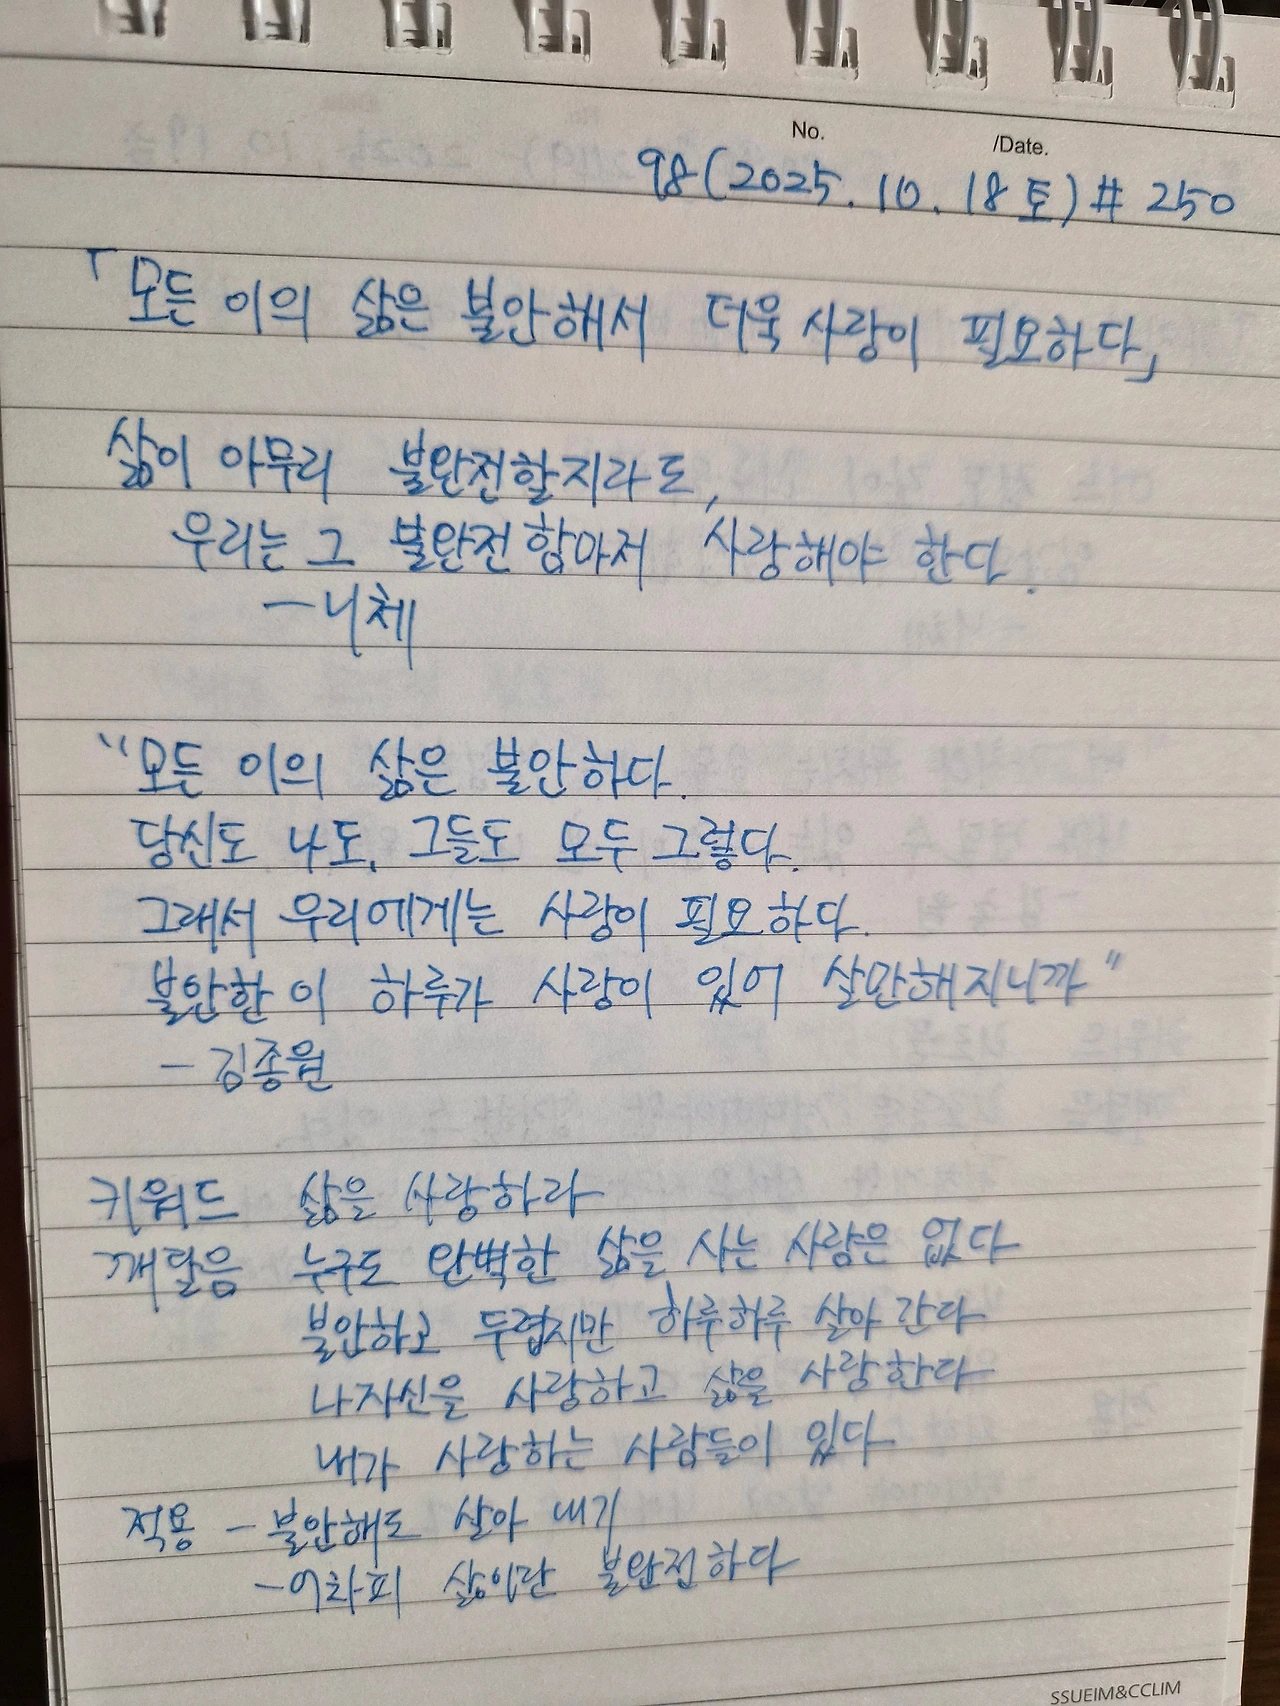 No. /Date.
98(2025.10.18토)# 250
「모든 이의 삶은 불안해서 더욱 사랑이 필요하다」
삶이 아무리 불완전할지라도,
우리는 그 불완전함마저 사랑해야 한다.
-니체
"모든 이의 삶은 불안하다.
당신도 나도, 그들도 모두 그렇다.
그래서 우리에게는 사랑이 필요하다.
불안한 이 하루가 사랑이 있어 살만해지니까"
- 김종원
키워드 삶을 사랑하라
깨달음 누구도 완벽한 삶을 사는 사람은 없다
불안하고 두렵지만 하루하루 살아 간다
나자신을 사랑하고 삶을 사랑한다
내가 사랑하는 사람들이 있다
적용 - 불안해도 살아 내기
-어차피 삶이란 불완전하다
SSUEIM&CCLIM